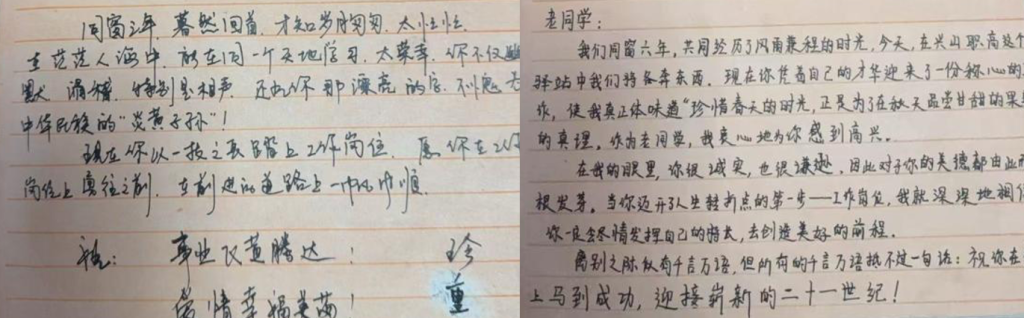 同窗三年,蓦然回首,才知岁月匆匆,太忙忙
在茫茫人海中,能在同一个天地学习,太荣幸,你不仅幽
默 滑稽,特别是相声,还有你那漂亮的字,不愧
中华民族的"炎黄子孙"!
现在你以一技之长踏上工作岗位,愿你在工作
岗位上勇往之前,在前进的道路上一帆风顺。
祝: 事业飞黄腾达!
爱情幸福美满!
珍
重
老同学:
我们同窗六年,共同经历了风雨兼程的时光,今天,在兴山职高这个
驿站中我们将各奔东西。现在你凭着自己的才华迎来了一份称心的
作,使我真正体味道"珍惜春天的时光,正是为了在秋天品尝甘甜的果
的真理。作为老同学,我衷心地为你感到高兴。
在我的眼里,你很诚实,也很谦逊,因此对于你的美德都由此
根发芽。当你迈开了人生转折点的第一步——工作岗位,我就深深地相信
你一定会尽情发挥自己的特长,去创造美好的前程。
离别之际似有千言万语,但所有的千言万语抵不过一句话:祝你在
上马到成功,迎接崭新的二十一世纪!